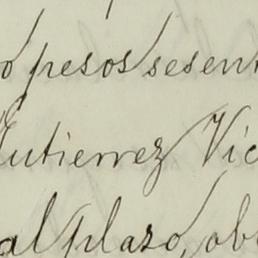 o pesos sesen
Gutierrez Vic
al plazo, ob